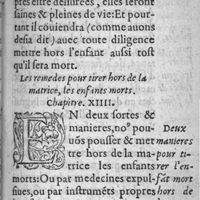 pres estre deliurees, elles seront
saines & pleines de vie: Et pour-
tant il couiendra (comme auons
desia dit) auec toute diligence
mettre hors l'enfant aussi tost
qu'il sera mort.
Les remedes pour tirer hors de la
matrice, les enfants morts.
Chapitre. XIIII.
EN deux sortes &
manieres, no⁹ pou-
uõs pousser & met
tre hors de la ma-
trice les enfants
morts: Ou par medecines expul-
siues, ou par instrumẽts propres
Deux
manieres
pour ti-
rer l'en-
fãt mort
hors de